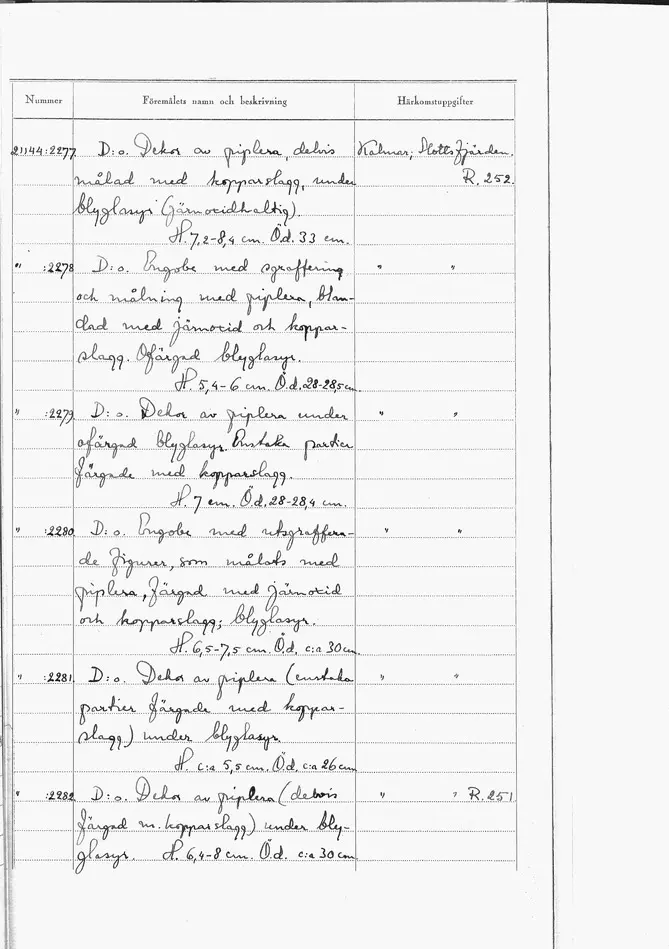 Nummer Föremålets namn och beskrivning Härkomstuppgifter
21144:2277 D:o. Dekor av piplera, delvis Kalmar; Slottsfjärden.
målad med kopparslagg, under R. 252.
blyglasyr (järnoxidhaltig).
H. 7,2-8,4 cm. Ö.d. 33 cm.
" :2278 D:o. Engobe med sgraffering " "
och målning med piplera, blan-
dad med järnoxid och koppar-
slagg. Ofärgad blyglasyr.
H. 5,4-6 cm. Ö.d. 28-28,5 cm.
" :2279 D:o. Dekor av piplera under " "
ofärgad blyglasyr. Enstaka partier
färgade med kopparslagg.
H. 7 cm. Ö.d. 28-28,4 cm.
" :2280 D:o. Engobe med utsgraffera- " "
de figurer, som målats med
piplera, färgad med järnoxid
och kopparslagg; blyglasyr.
H. 6,5-7,5 cm. Ö.d. c:a 30 cm
" :2281 D:o. Dekor av piplera (enstaka " "
partier färgade med koppar-
slagg) under blyglasyr.
H. c:a 5,5 cm. Ö.d. c:a 26 cm
" :2282 D:o. Dekor av piplera (delvis " " R. 251
färgad m. kopparslagg) under bly-
glasyr. H. 6,4-8 cm. Ö.d. c:a 30 cm